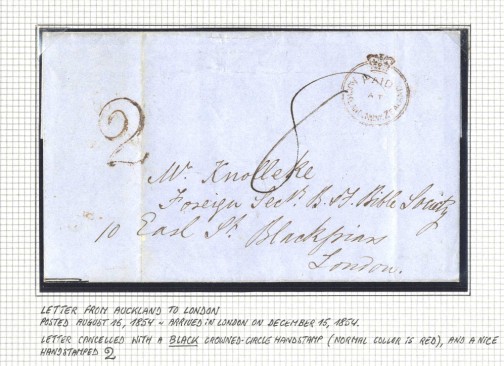 PAID
AT
2
8
Mr. Knolleke
Foreign Secy. B. & F. Bible Society
10 Earl St. Blackfriars
London.
LETTER FROM AUCKLAND TO LONDON
POSTED AUGUST 16, 1854 - ARRIVED IN LONDON ON DECEMBER 15, 1854.
LETTER CANCELLED WITH A BLACK CROWNED-CIRCLE HANDSTAMP (NORMAL COLOR IS RED), AND A NICE
HANDSTAMPED 2